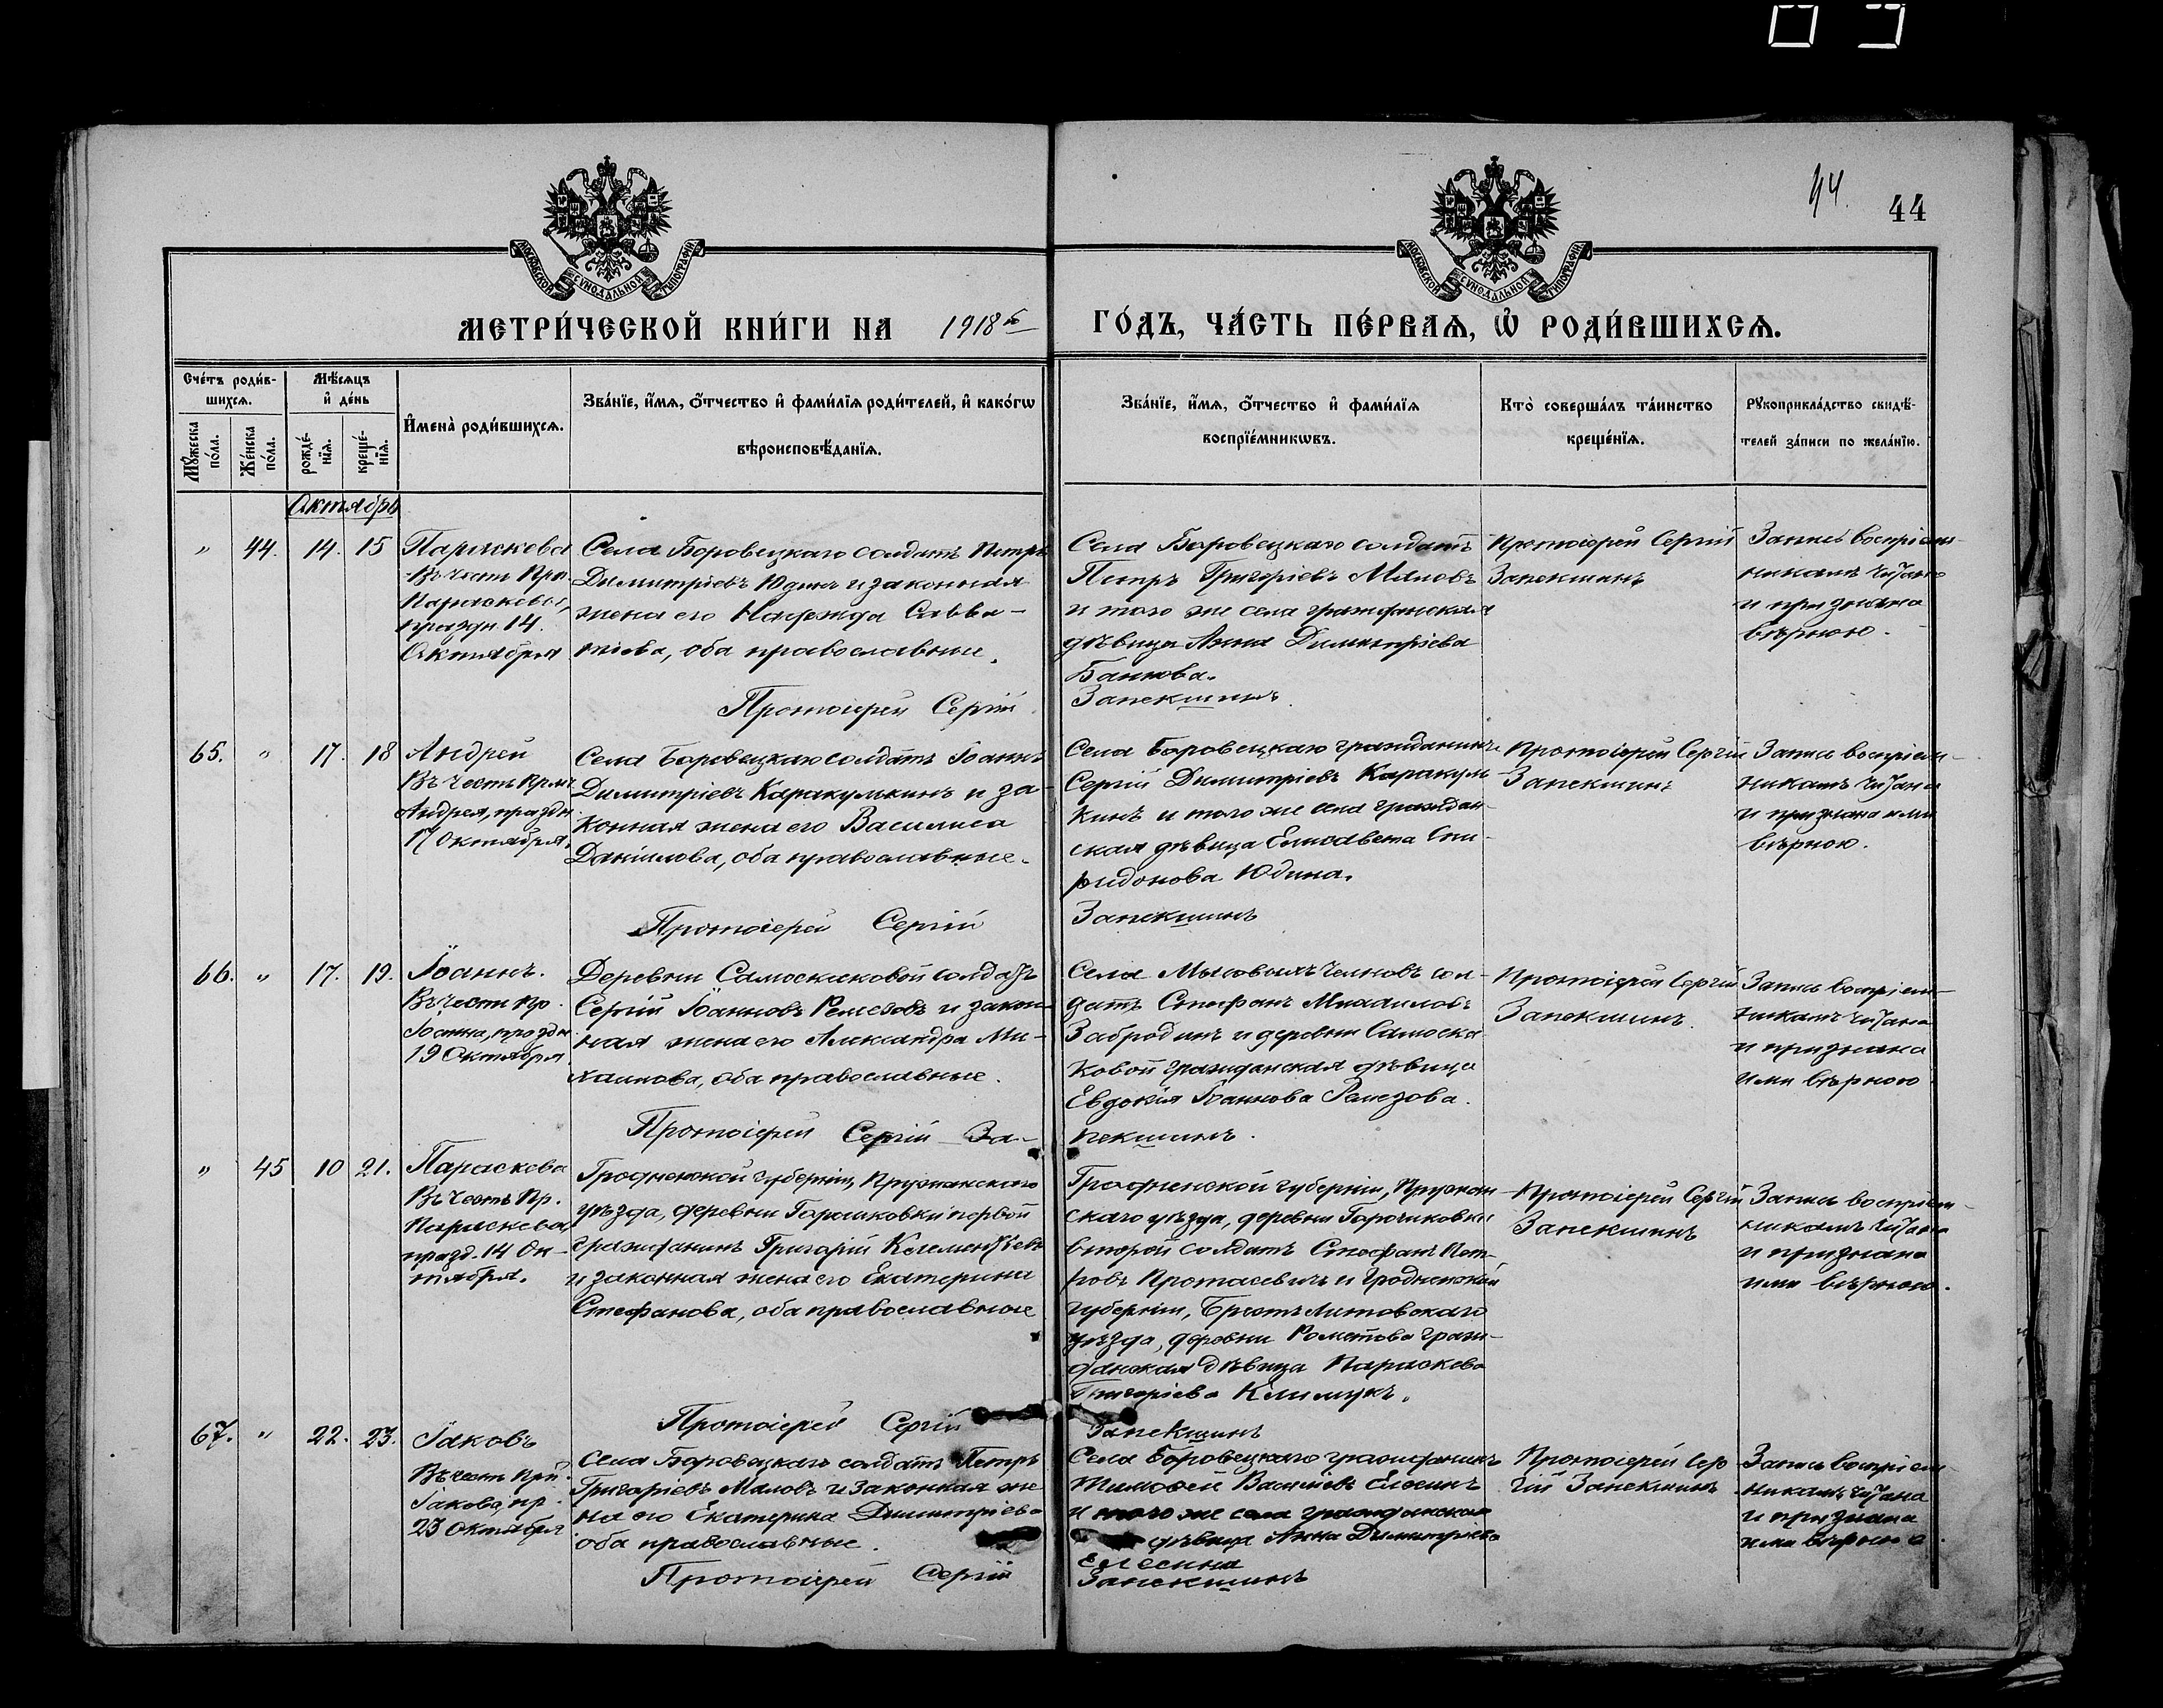 44.
44
МОСКОВСКОЙ СѴНОДАЛЬНОЙ ТИПОГРАФІИ
МОСКОВСКОЙ СѴНОДАЛЬНОЙ ТИПОГРАФІИ
МЕТРИ́ЧЕСКОЙ КНИ́ГИ НА 1918 й
ГО́ДЪ, ЧА́СТЬ ПЕ́РВАѦ, Ѽ РОДИ́ВШИХСѦ.
Сче́тъ роди́в-
шихсѧ.
Мꙋ́жеска по́ла.
Же́нска по́ла.
Мѣ́сѧцъ
и҆ де́нь
рожде́-
нїѧ.
креще́-
нїѧ.
И҆мена̀ роди́вшихсѧ.
Зва́нїе, и҆́мѧ, ѻ҆́тчество и҆ фами́лїѧ роди́телей, и҆ како́гѡ
вѣроисповѣ́данїѧ.
Зва́нїе, и҆́мѧ, ѻ҆́тчество и҆ фами́лїѧ
воспрїе́мникѡвъ.
Кто̀ соверша́лъ та́инство
креще́нїѧ.
Рꙋкоприкла́дство свидѣ́-
телей за́писи по жела́нїю.
Октябрь
" 44. 14. 15
Параскева
Въ честь Прп.
Параскевы,
праздн 14.
Октября
Села Боровецкаго солдатъ Петръ
Димитріевъ Юдинъ и законная
жена его Надежда Савва-
тіева, оба православные.
Протоіерей Сергій
Села Боровецкаго солдатъ
Петръ Григоріевъ Маловъ
и того же села гражданская
дѣвица Анна Димитріева
Банкова.
Запекшинъ.
Протоіерей Сергій
Запекшинъ
Запись воспріем-
никамъ читана
и признана
вѣрною.
65. " 17. 18
Андрей
Въ честь Прмч
Андрея, праздн
17 Октября.
Села Боровецкаго солдатъ Іоаннъ
Димитріевъ Каракулькинъ и за-
конная жена его Василиса
Даніилова, оба православные.
Протоіерей Сергій
Села Боровецкаго гражданинъ
Сергій Димитріевъ Каракуль-
кинъ и того же села граждан-
ская дѣвица Елисавета Спи-
ридонова Юдина.
Запекшинъ
Протоіерей Сергій
Запекшинъ
Запись воспріем-
никамъ читана
и признана ими
вѣрною.
66. " 17. 19.
Іоаннъ.
Въ честь Пр.
Іоанна, праздн
19 Октября
Деревни Самоскаковой солдатъ
Сергій Іоанновъ Ремезовъ и закон-
ная жена его Александра Ми-
хаилова, оба православные.
Протоіерей Сергій За-
Села Мысовыхъ Челновъ сол-
датъ Стефанъ Михаиловъ
Забродинъ и деревни Самоска-
ковой гражданская дѣвица
Евдокія Іоаннова Ремезова.
пекшинъ.
Протоіерей Сергій
Запекшинъ.
Запись воспріем-
никамъ читана
и признана
ими вѣрною
" 45 10 21.
Параскева
Въ честь Пр.
Параскевы,
празд. 14 Ок-
тября.
Гродненской губерніи, Пружанскаго
уѣзда, деревни первой
гражданинъ Григорій
и законная жена его Екатерина
Стефанова, оба православные
Протоіерей Сергій
Гродненской губерніи, Пружан-
скаго уѣзда, деревни
второй солдатъ Стефанъ Пет-
ровъ Протасевичъ и Гродненской
губерніи, Брестъ-Литовскаго
уѣзда, деревни граж-
данская дѣвица Параскева
Григоріева Климукъ.
Запекшинъ
Протоіерей Сергій
Запекшинъ
Запись воспріем-
никамъ читана
и признана
ими вѣрною.
67. " 22. 23.
Іаковъ
Въ честь Прп.
Іакова, пр.
23 Октября
Села Боровецкаго солдатъ Петръ
Григоріевъ Маловъ и законная же-
на его Екатерина Димитріева
оба православные.
Протоіерей Сергій
Села Боровецкаго гражданинъ
Тимоѳей Василіевъ Елесинъ
и того же села гражданская
дѣвица Анна Димитріева
Елесина
Запекшинъ
Протоіерей Сер
гій Запекшинъ
Запись воспріем
никамъ читана
и признана
ими вѣрною.